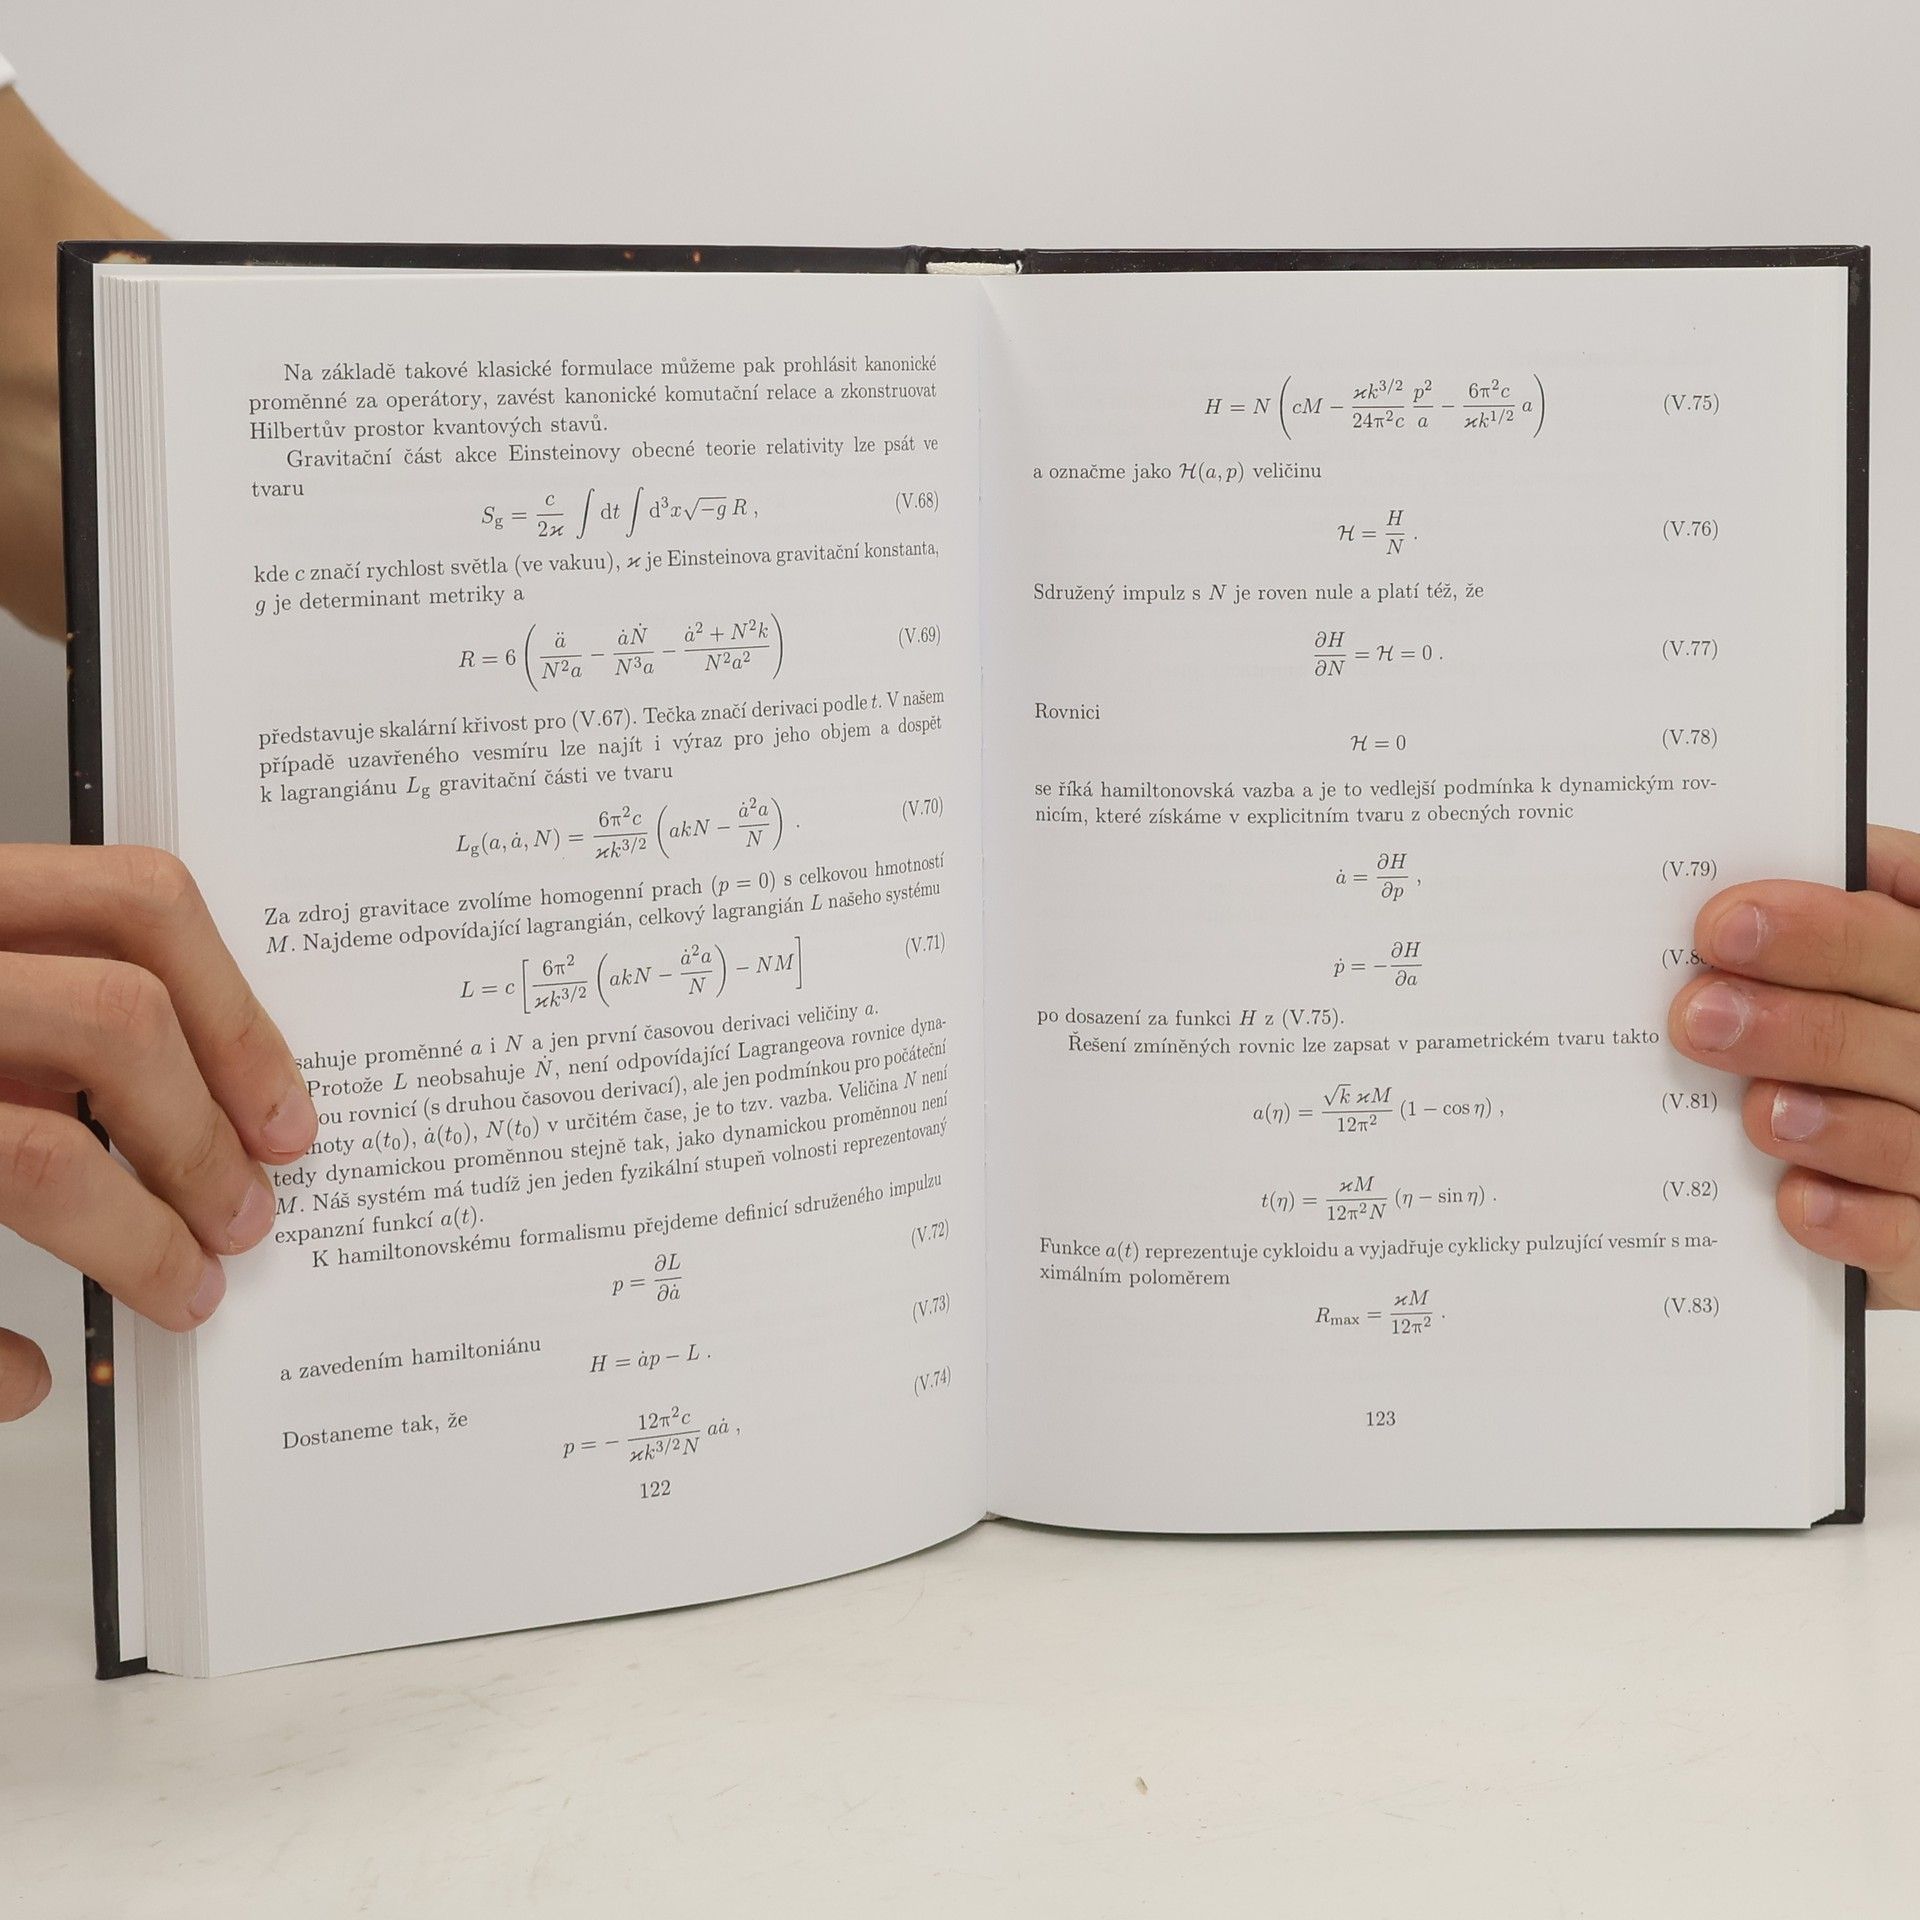 Na základě takové klasické formulace můžeme pak prohlásit kanonické
proměnné za operátory, zavést kanonické komutační relace a zkonstruovat
Hilbertův prostor kvantových stavů.
Gravitační část akce Einsteinovy obecné teorie relativity lze psát ve
tvaru
S_g = \frac{c}{2ϰ} ∫ dt ∫ d³x√−g R , (V.68)
kde c značí rychlost světla (ve vakuu), ϰ je Einsteinova gravitační konstanta,
g je determinant metriky a
R = 6 ( \frac{ä}{N²a} − \frac{ȧṄ}{N³a} − \frac{ȧ² + N²k}{N²a²} ) (V.69)
představuje skalární křivost pro (V.67). Tečka značí derivaci podle t. V našem
případě uzavřeného vesmíru lze najít i výraz pro jeho objem a dospět
k lagrangiánu L_g gravitační části ve tvaru
L_g(a, ȧ, N) = \frac{6π²c}{ϰk^{3/2}} ( akN − \frac{ȧ²a}{N} ) . (V.70)
Za zdroj gravitace zvolíme homogenní prach (p = 0) s celkovou hmotností
M. Najdeme odpovídající lagrangián, celkový lagrangián L našeho systému
L = c [ \frac{6π²}{ϰk^{3/2}} ( akN − \frac{ȧ²a}{N} ) − NM ] (V.71)
sahuje proměnné a i N a jen první časovou derivaci veličiny a.
Protože L neobsahuje Ṅ, není odpovídající Lagrangeova rovnice dyna-
ou rovnicí (s druhou časovou derivací), ale jen podmínkou pro počáteční
noty a(t₀), ȧ(t₀), N(t₀) v určitém čase, je to tzv. vazba. Veličina N není
tedy dynamickou proměnnou stejně tak, jako dynamickou proměnnou není
M. Náš systém má tudíž jen jeden fyzikální stupeň volnosti reprezentovaný
expanzní funkcí a(t).
K hamiltonovskému formalismu přejdeme definicí sdruženého impulzu
p = \frac{∂L}{∂ȧ} (V.72)
a zavedením hamiltoniánu
H = ȧp − L . (V.73)
Dostaneme tak, že
p = − \frac{12π²c}{ϰk^{3/2}N} aȧ , (V.74)
122
H = N ( cM − \frac{ϰk^{3/2}}{24π²c} \frac{p²}{a} − \frac{6π²c}{ϰk^{1/2}} a ) (V.75)
a označme jako ℋ(a, p) veličinu
ℋ = \frac{H}{N} . (V.76)
Sdružený impulz s N je roven nule a platí též, že
\frac{∂H}{∂N} = ℋ = 0 . (V.77)
Rovnici
ℋ = 0 (V.78)
se říká hamiltonovská vazba a je to vedlejší podmínka k dynamickým rov-
nicím, které získáme v explicitním tvaru z obecných rovnic
ȧ = \frac{∂H}{∂p} , (V.79)
ṗ = − \frac{∂H}{∂a} (V.8
po dosazení za funkci H z (V.75).
Řešení zmíněných rovnic lze zapsat v parametrickém tvaru takto
a(η) = \frac{√k ϰM}{12π²} (1 − cos η) , (V.81)
t(η) = \frac{ϰM}{12π²N} (η − sin η) . (V.82)
Funkce a(t) reprezentuje cykloidu a vyjadřuje cyklicky pulzující vesmír s ma-
ximálním poloměrem
R_max = \frac{ϰM}{12π²} . (V.83)
123